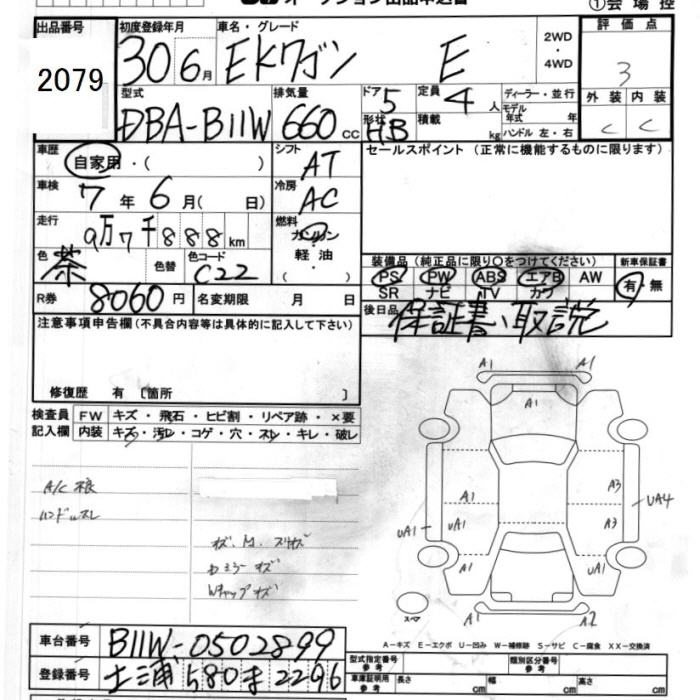 オークション出品申込書
①会場控
出品番号 初度登録年月 車名・グレード 2WD・4WD 評価点
2079 30 6月 EKワゴン E 3
型式 排気量 ドア 5 定員 4人 ディーラー・並行 外装 内装
DBA-B11W 660cc 形状 HB 積載 kg モデル年式 年 ハンドル 左・右 C C
車歴 自家用・( ) シフト AT セールスポイント (正常に機能するものに限ります)
車検 7年6月( 日) 冷房 AC
走行 9万7千888km 燃料 ガソリン 軽油 ( ・ )
色 茶 色替 色コード C22 装備品 (純正品に限り○をつけてください) 新車保証書
PS PW ABS エアB AW 有・無
SR ナビ TV カワ
R券 8060円 名変期限 月 日 後日品 保証書、取説
注意事項申告欄 (不具合内容等は具体的に記入して下さい)
修復歴 有 [箇所 ]
検査員 FW キズ・飛石・ヒビ割・リペア跡・×要
記入欄 内装 キズ・汚レ・コゲ・穴・スレ・キレ・破レ
A1 A1
A1
A/C 痕
ハンドルスレ
A1 A3 UA4
UA1 UA1 A3
A1 UA1
スペア A1 A2
A-キズ E-エクボ U-凹み W-補修跡 S-サビ C-腐食 XX-交換済
車台番号 B11W-0502899
登録番号 土浦 580 ま 2296
型式指定番号 参考 類別区分番号 参考
車庫証明用 参考 長さ cm 幅 cm 高さ cm